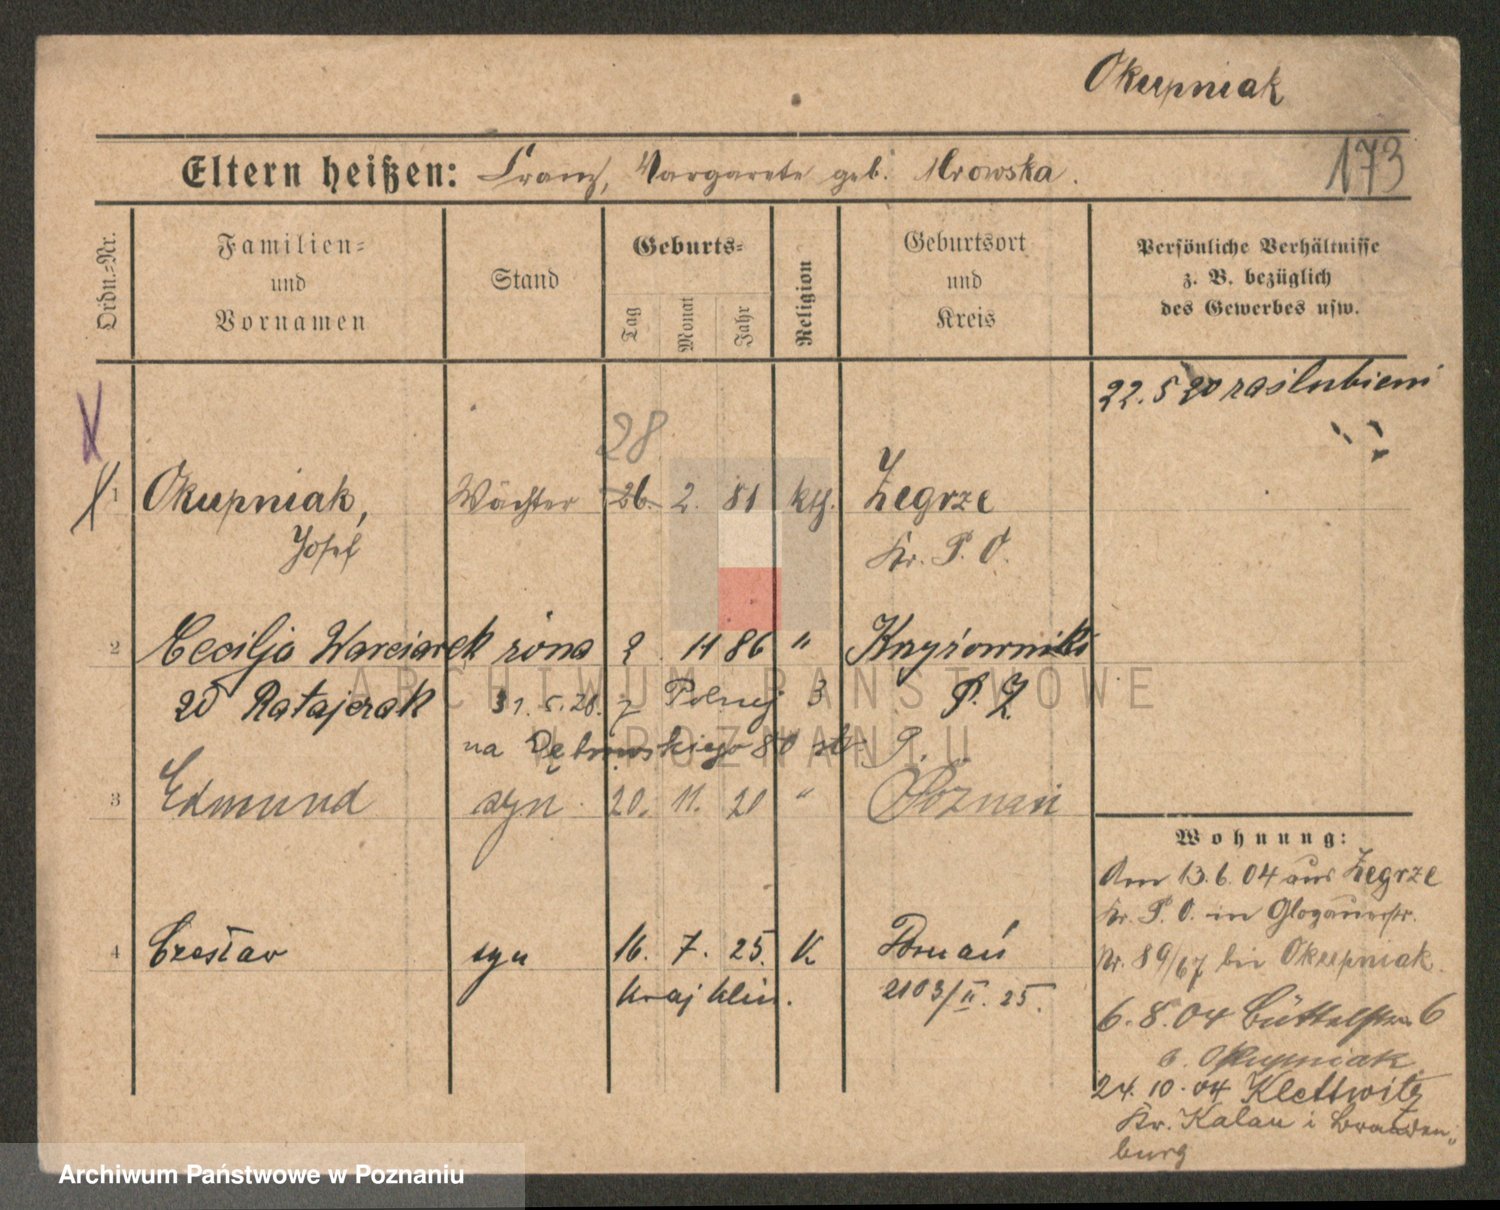 Okupniak
173
Eltern heißen: Franz, Margarete geb. Mrowska.
Ordn.-Nr.
Familien-
und
Vornamen
Stand
Geburts-
Tag
Monat
Jahr
Religion
Geburtsort
und
Kreis
Persönliche Verhältnisse
z. B. bezüglich
des Gewerbes usw.
22. 5 20 zaślubieni
28
1 Okupniak, Wächter 26. 2. 81 kth. Zegrze
Josef Kr. P. O.
2 Cecilja Warciarek żona 2 11 86 " Knyżowniki
20 Ratajczak 31. 5. 28. z Polnej 3 P. Z
na Dębrowskiego 80
3 Edmund syn 20. 11. 20 " Poznań
4 Czesław syn 16. 7. 25. K Poznań
Kraj klin. 2103/II. 25.
Wohnung:
Am 13. 6. 04 aus Zegrze
Kr. P. O. in Glogauerstr.
Nr. 89/67 bei Okupniak.
6. 8. 04 Büttelstr. 6
b. Okupniak
24. 10. 04 Klettwitz
Kr. Kalau i Branden-
burg
ARCHIWUM PAŃSTWOWE
W POZNANIU
Archiwum Państwowe w Poznaniu